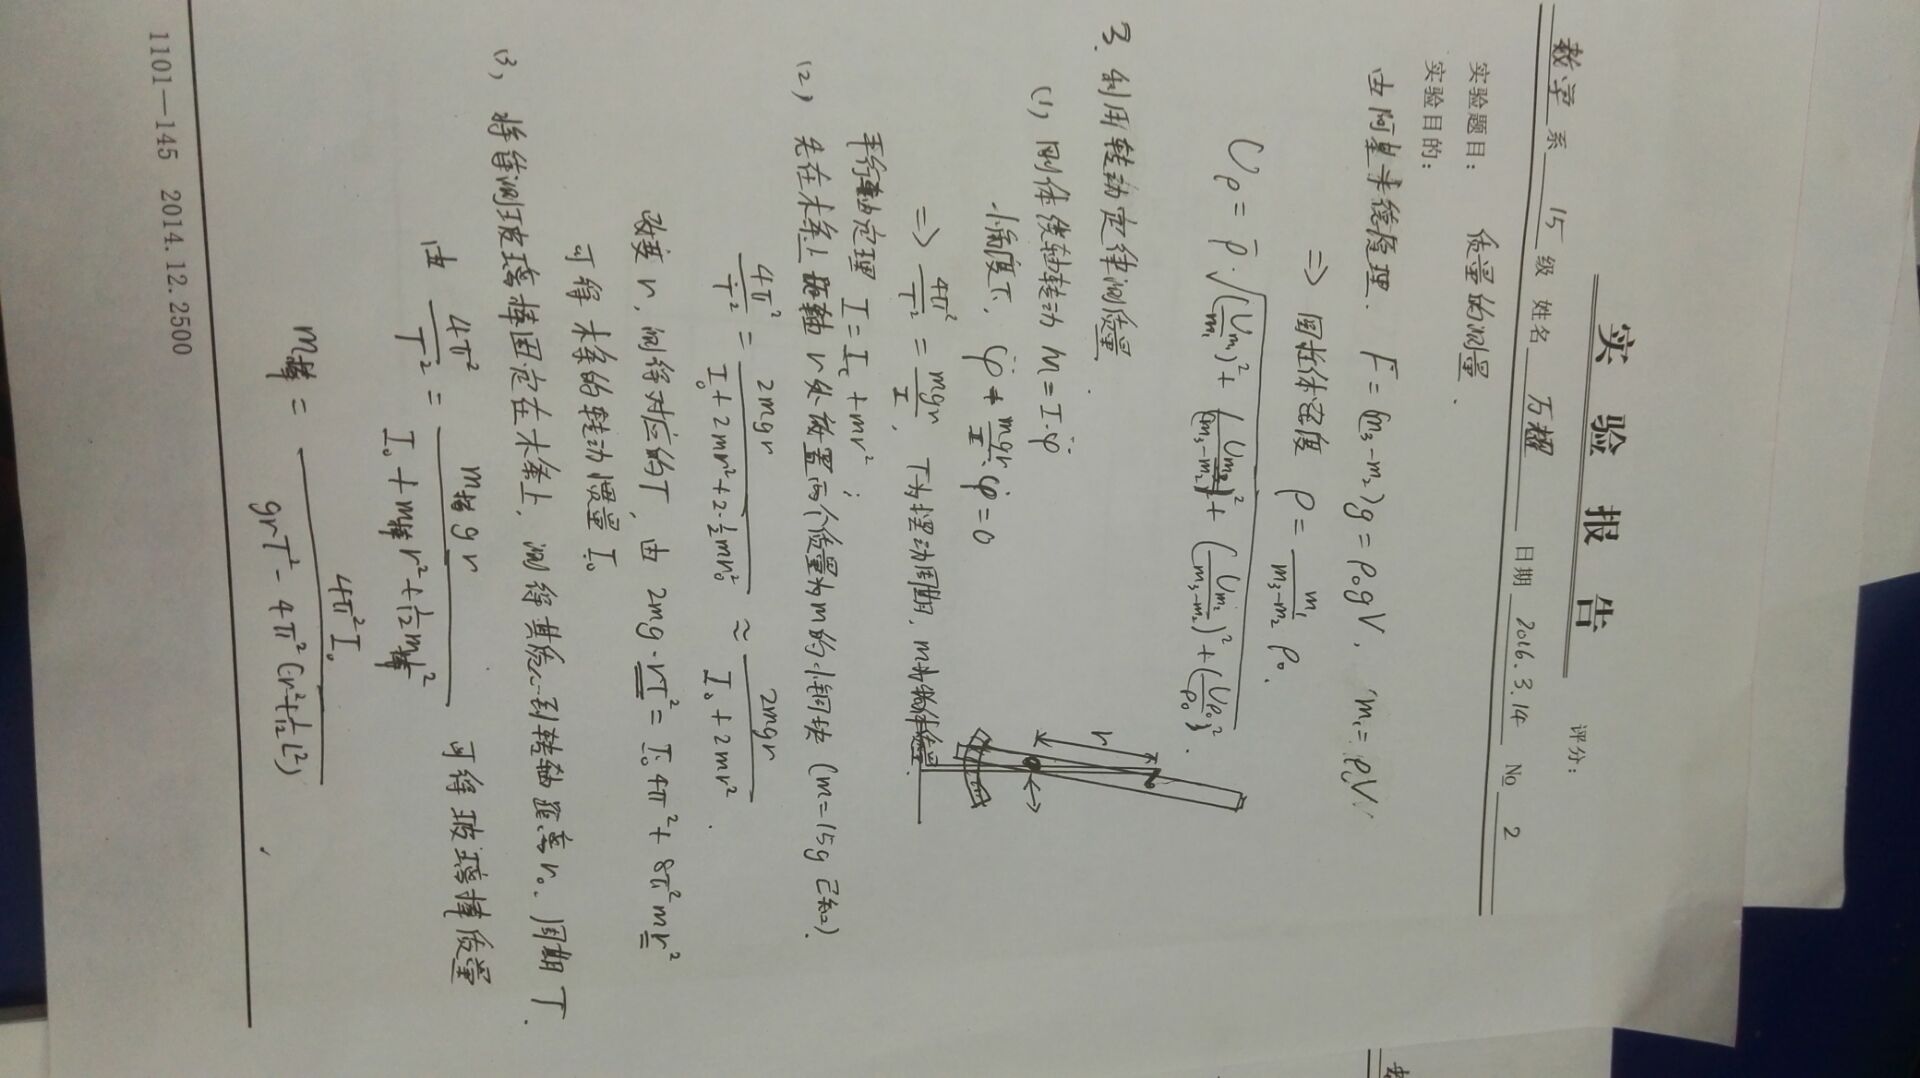 实验报告
评分:
数学 系 15 级 姓名 万耀 日期 2016.3.14 No 2
实验题目: 质量的测量.
实验目的:
由阿基米德原理. F=(m₃-m₂)g=ρ₀gV, m₁=ρV,
=> 圆柱体密度 ρ= m₁/(m₃-m₂) ρ₀.
Uρ = ρ̄·√((Um₁/m₁)²+(Um₃/(m₃-m₂))²+(Um₂/(m₃-m₂))²+(Uρ₀/ρ₀)²).
3. 利用转动定律测质量
(1), 刚体绕轴转动 M=I·φ̈
小角度下, φ̈+mgr/I·φ=0
=> 4π²/T² = mgr/I, T为摆动周期, m为物体质量.
平行轴定理 I=Ic+mr²;
r
(2) 先在木条上距轴r处放置两个质量为m的小铜块 (m=15g已知).
4π²/T² = 2mgr/(I₀+2mr²+2·½mr₀²) ≈ 2mgr/(I₀+2mr²).
改变r, 测得对应的T, 由 2mg·rT²=I₀4π²+8π²mr²
可得木条的转动惯量I₀
(3, 将待测玻璃棒固定在木条上, 测得其质心到转轴距离r₀. 周期T.
由 4π²/T² = m棒gr/(I₀+m棒r²+1/12m棒l²) 可得玻璃棒质量
m棒 = 4π²I₀/(grT²-4π²(r²+1/12l²))
1101—145 2014.12.2500